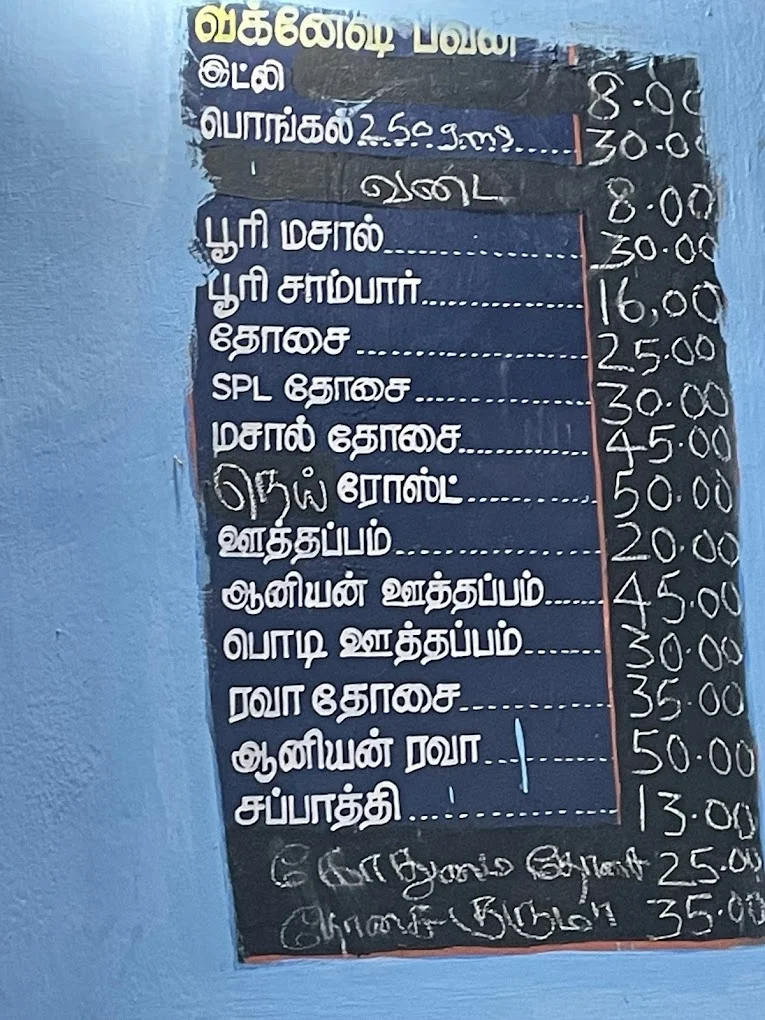 விக்னேஷ் பவன்
இட்லி 8.00
பொங்கல் 250 கிராம் 30.00
வடை 8.00
பூரி மசால் 30.00
பூரி சாம்பார் 16,00
தோசை 25.00
SPL தோசை 30.00
மசால் தோசை 45.00
நெய் ரோஸ்ட் 50.00
ஊத்தப்பம் 20.00
ஆனியன் ஊத்தப்பம் 45.00
பொடி ஊத்தப்பம் 30.00
ரவா தோசை 35.00
ஆனியன் ரவா 50.00
சப்பாத்தி 13.00
கோதுமை தோசை 25.00
தோசை குருமா 35.00